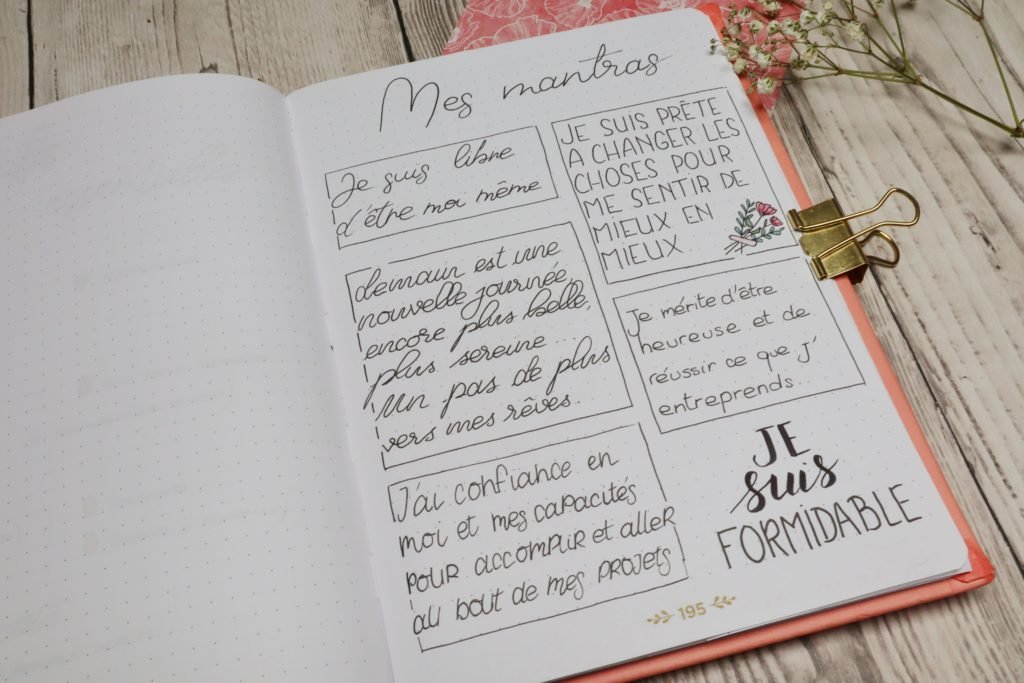 Mes mantras
Je suis libre
d'être moi même
JE SUIS PRÊTE
A CHANGER LES
CHOSES POUR
ME SENTIR DE
MIEUX EN
MIEUX
demain est une
nouvelle journée,
encore plus belle,
plus sereine...
Un pas de plus
vers mes rêves..
Je mérite d'être
heureuse et de
réussir ce que j'
entreprends.
J'ai confiance en
moi et mes capacités
pour accomplir et aller
au bout de mes projets
JE
suis
FORMIDABLE
195